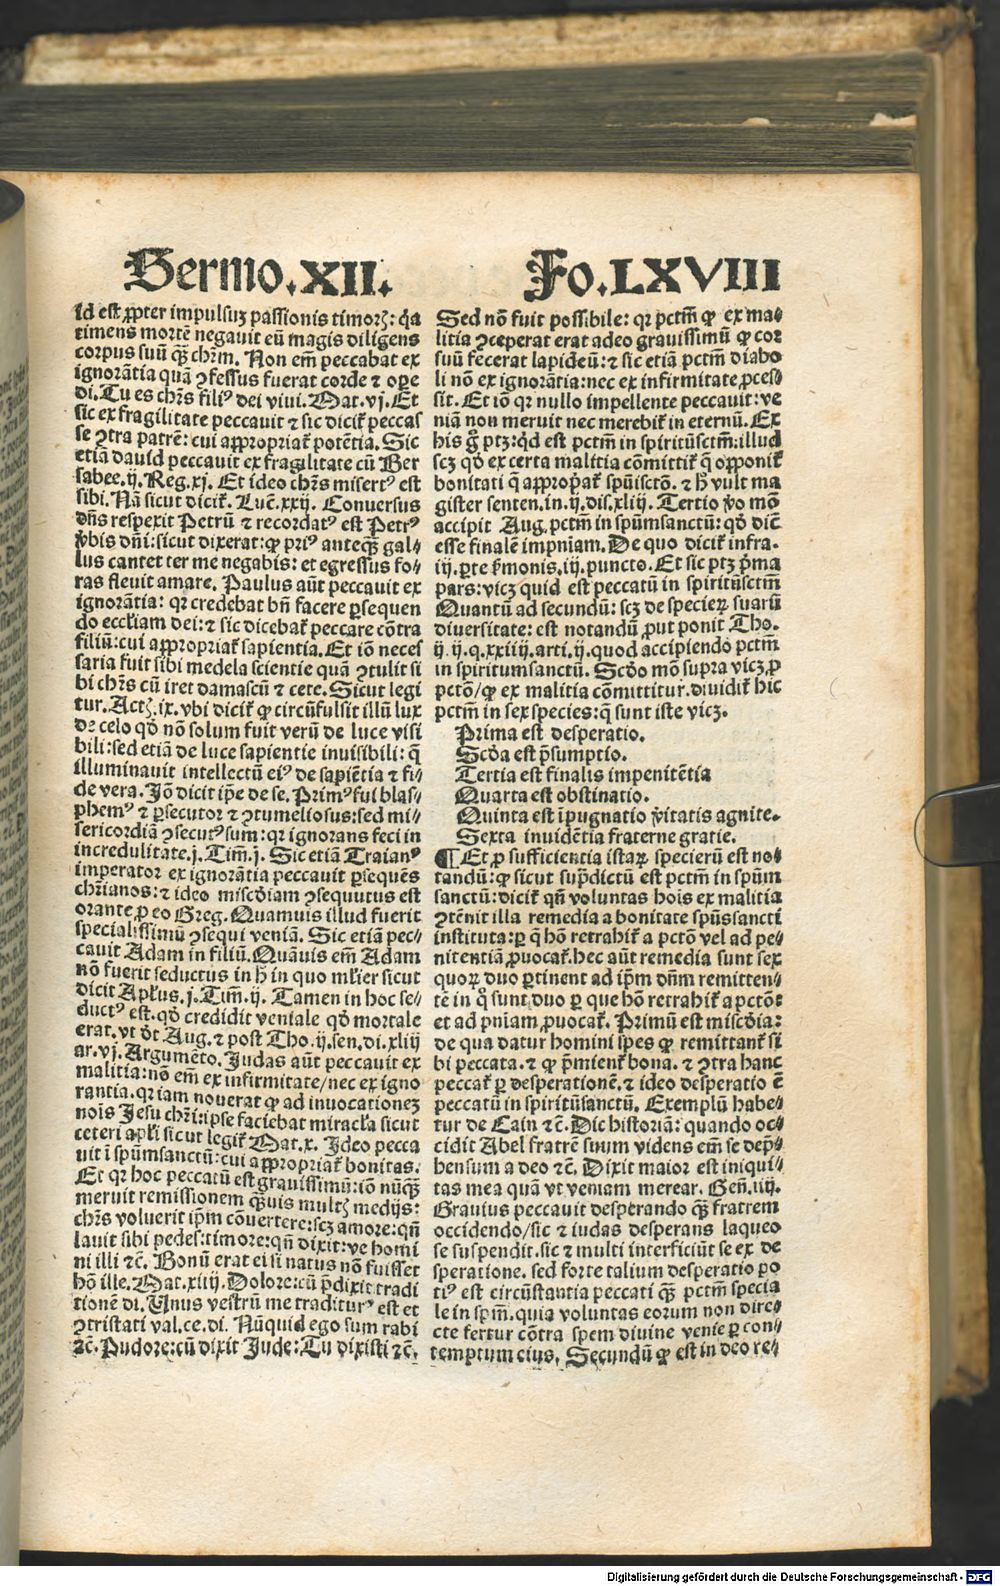 Sermo.XII. Fo.LXVIII
id est ꝓpter impulsuꝫ passionis timorꝭ: q̈a
timens mortē negauit eū magis diligens
corpus suū qꝫ chr̄m. Non em̄ peccabat ex
ignorātia quā ꝯfessus fuerat corde ⁊ ore
di. Tu es chr̄s filiꝰ dei viui. Mat. vj. Et
sic ex fragilitate peccauit ⁊ sic dicit̄ peccas
se ꝯtra patrē: cui appropriat̄ potētia. Sic
etiā dauid peccauit ex fragilitate cū Ber
sabee. ij. Reg. xj. Et ideo chr̄s misertꝰ est
sibi. Nā sicut dicit̄. Luc̄. xxij. Conuersus
dn̄s respexit Petrū ⁊ recordatꝰ est Petrꝰ
v̄bis dn̄i: sicut dixerat: ꝙ priꝰ anteqꝫ gal⸗
lus cantet ter me negabis: et egressus fo⸗
ras fleuit amare. Paulus aūt peccauit ex
ignorātia: qꝛ credebat bn̄ facere ꝑsequen
do eccƚiam dei: ⁊ sic dicebat̄ peccare cōtra
filiū: cui appropriat̄ sapientia. Et iō neces
saria fuit sibi medela scientie quā ꝯtulit si
bi chr̄s cū iret damascū ⁊ cete. Sicut legi
tur. Actꝭ. ix. vbi dicit̄ ꝙ circūfulsit illū lux
de celo qd̄ nō solum fuit verū de luce visi
bili: sed etiā de luce sapientie inuisibili: q̄
illuminauit intellectū eiꝰ de sapiētia ⁊ fi⸗
de vera. Iō dicit ip̄e de se. Primꝰ fui blas⸗
phemꝰ ⁊ ꝑsecutor ⁊ ꝯtumeliosus: sed mi⸗
sericordiā ꝯsecutꝰ sum: qꝛ ignorans feci in
incredulitate. j. Tim̄. j. Sic etiā Traianꝰ
imperator ex ignorātia peccauit ꝑsequēs
chr̄ianos: ⁊ ideo miscd̄iam ꝯsequutus est
orante ꝓ eo Greg. Quamuis illud fuerit
specialissimū ꝯsequi veniā. Sic etiā pec⸗
cauit Adam in filiū. Quāuis em̄ Adam
nō fuerit seductus in h̄ in quo mƚier sicut
dicit Apƚus. j. Tim̄. ij. Tamen in hoc se⸗
ductꝰ est. qd̄ credidit veniale qd̄ mortale
erat. vt dt̄ Aug. ⁊ post Tho. ij. sen. di. xliij
ar. vj. Argumēto. Judas aūt peccauit ex
malitia: nō em̄ ex infirmitate/nec ex igno
rantia. qꝛ iam nouerat ꝙ ad inuocationeꝫ
nois Jesu chr̄i: ipse faciebat miracƚa sicut
ceteri apƚi sicut legit̄ Mat. x. Ideo pecca
uit ī spūmsanctū: cui appropriat̄ bonitas.
Et qꝛ hoc peccatū est grauissimū: iō nūqꝫ
meruit remissionem qꝫuis multꝭ medijs:
chr̄s voluerit ip̄m cōuertere: scꝫ amore: qn̄
lauit sibi pedes: timore: qn̄ dixit: ve homi
ni illi ⁊c̄. Bonū erat ei si natus nō fuisset
hō ille. Mat. xiiij. Dolore: cū p̄dixit tradi
tionē di. Unus vestrū me traditurꝰ est et
ꝯtristati val. ce. di. Nūquid ego sum rabi
⁊c̄. Pudore: cū dixit Jude: Tu dixisti ⁊c̄.
Sed nō fuit possibile: qꝛ pctm̄ ꝙ ex ma⸗
litia ꝯceperat erat adeo grauissimū ꝙ cor
suū fecerat lapideū: ⁊ sic etiā pctm̄ diabo
li nō ex ignorātia: nec ex infirmitate ꝓces⸗
sit. Et iō qꝛ nullo impellente peccauit: ve
niā non meruit nec merebit̄ in eternū. Ex
his g̊ ptꝫ: qd̄ est pctm̄ in spiritūsctm̄: illud
scꝫ qd̄ ex certa malitia cōmittit̄ q̄ opponit̄
bonitati q̄ appropat̄ spūisctō. ⁊ h̄ vult ma
gister senten. in. ij. dis. xliij. Tertio v̄o mō
accipit Aug. pctm̄ in spūmsanctū: qd̄ dic̄
esse finalē impniam. De quo dicit̄ infra.
iij. ꝑte s̄monis. iij. puncto. Et sic ptꝫ p̄ma
pars: vicꝫ quid est peccatū in spiritūsctm̄
Quantū ad secundū: scꝫ de specieꝝ suarū
diuersitate: est notandū ꝓut ponit Tho.
ij. ij. q. xxiiij. arti. ij. quod accipiendo pctm̄
in spiritumsanctū. Scd̄o mō supra vicꝫ ꝓ
pctō/ꝙ ex malitia cōmittitur. diuidit̄ hic
pctm̄ in sex species: q̄ sunt iste vicꝫ.
Prima est desperatio.
Scd̄a est p̄sumptio.
Tertia est finalis impenitētia
Quarta est obstinatio.
Quinta est īpugnatio v̄itatis agnite.
Sexta inuidētia fraterne gratie.
¶ Et ꝓ sufficientia istaꝝ specierū est no⸗
tandū: ꝙ sicut sup̄dictū est pctm̄ in spūm
sanctū: dicit̄ qn̄ voluntas hois ex malitia
ꝯtēnit illa remedia a bonitate spūssancti
instituta: ꝑ q̄ hō retrahit̄ a pctō vel ad pe⸗
nitentiā ꝓuocat̄. hec aūt remedia sunt sex
quoꝝ duo ꝑtinent ad ip̄m dn̄m remitten⸗
tē in q̊ sunt duo ꝑ que hō retrahit̄ a pctō:
et ad pniam ꝓuocat̄. Primū est miscd̄ia:
de qua datur homini spes ꝙ remittant̄ si
bi peccata. ⁊ ꝙ p̄mient̄ bona. ⁊ ꝯtra hanc
peccat̄ ꝑ desperationē. ⁊ ideo desperatio ē
peccatū in spiritūsanctū. Exemplū habe⸗
tur de Cain ⁊c̄. Dic historiā: quando oc⸗
cidit Abel fratrē suum videns em̄ se dep̄⸗
hensum a deo ⁊c̄. Dixit maior est iniqui⸗
tas mea quā vt veniam merear. Gen̄. iiij.
Grauius peccauit desperando qꝫ fratrem
occidendo/sic ⁊ iudas desperans laqueo
se suspendit. sic ⁊ multi interficiūt se ex de
speratione. sed forte talium desperatio po
tiꝰ est circūstantia peccati qꝫ pctm̄ specia
le in spm̄. quia voluntas eorum non dire⸗
cte fertur cōtra spem diuine venie ꝑ con⸗
temptum eius. Secundū ꝙ est in deo re⸗
Digitalisierung gefördert durch die Deutsche Forschungsgemeinschaft - DFG